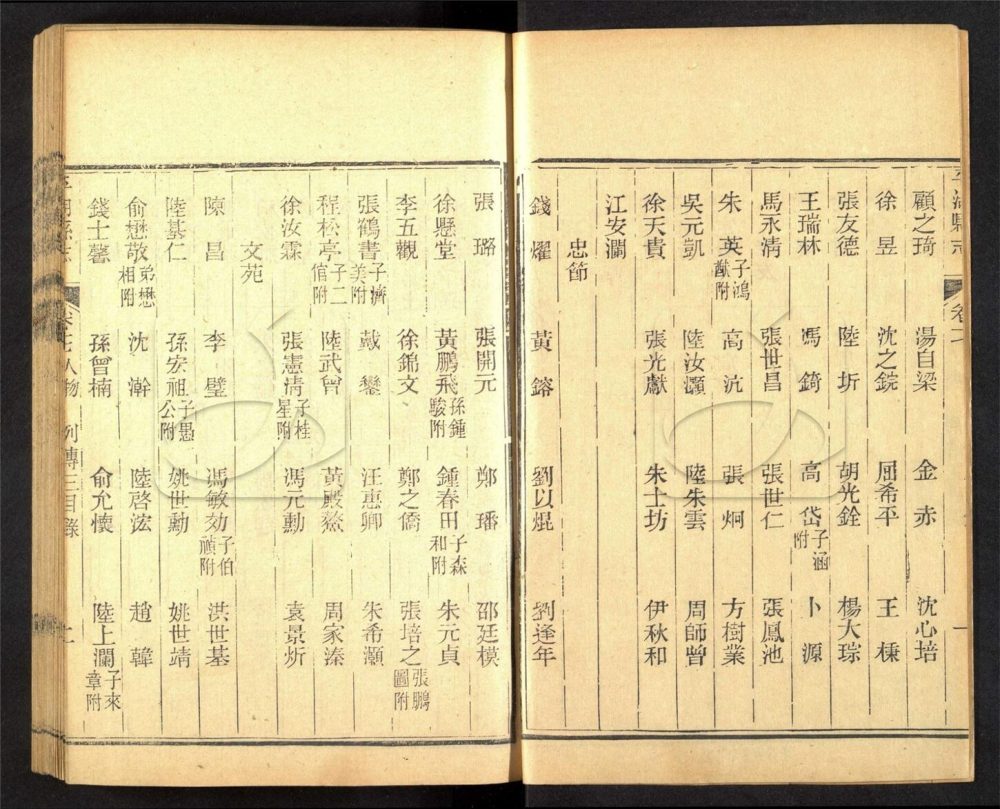 平湖縣志
顧之琦 湯自梁 金赤 沈心培
徐昱 沈之鋐 屈希平 王梀
張友德 陸圻 胡光銓 楊大琮
王瑞林 馮錡 高岱子涵附 卜源
馬永清 張世昌 張世仁 張鳳池
朱英子鴻猷附 高沆 張炯 方樹業
吳元凱 陸汝灝 陸朱雲 周師曾
徐天貴 張光獻 朱士坊 伊秋和
江安瀾
忠節
錢燿 黃鎔 劉以焜 劉逢年
張璐 張開元 鄭璠 邵廷模
徐懸堂 黃鵬飛孫鍾駿附 鍾春田子森和附 朱元貞
李五觀 徐錦文 鄭之僑 張培之張鵬圖附
張鶴書子濟美附 戴鑾 汪惠卿 朱希灝
程松亭子二倌附 陸武曾 黃殿鰲 周家溱
徐汝霖 張憲清子桂星附 馮元勳 袁景炘
文苑
陳昌 李璧 馮敏効子伯禎附 洪世基
陸基仁 孫宏祖子愚公附 姚世勳 姚世靖
俞懋敬弟懋相附 沈澣 陸啓浤 趙韓
錢士馨 孫曾楠 俞允懷 陸上瀾子來章附
平湖縣志 卷七人物 列傳三目錄